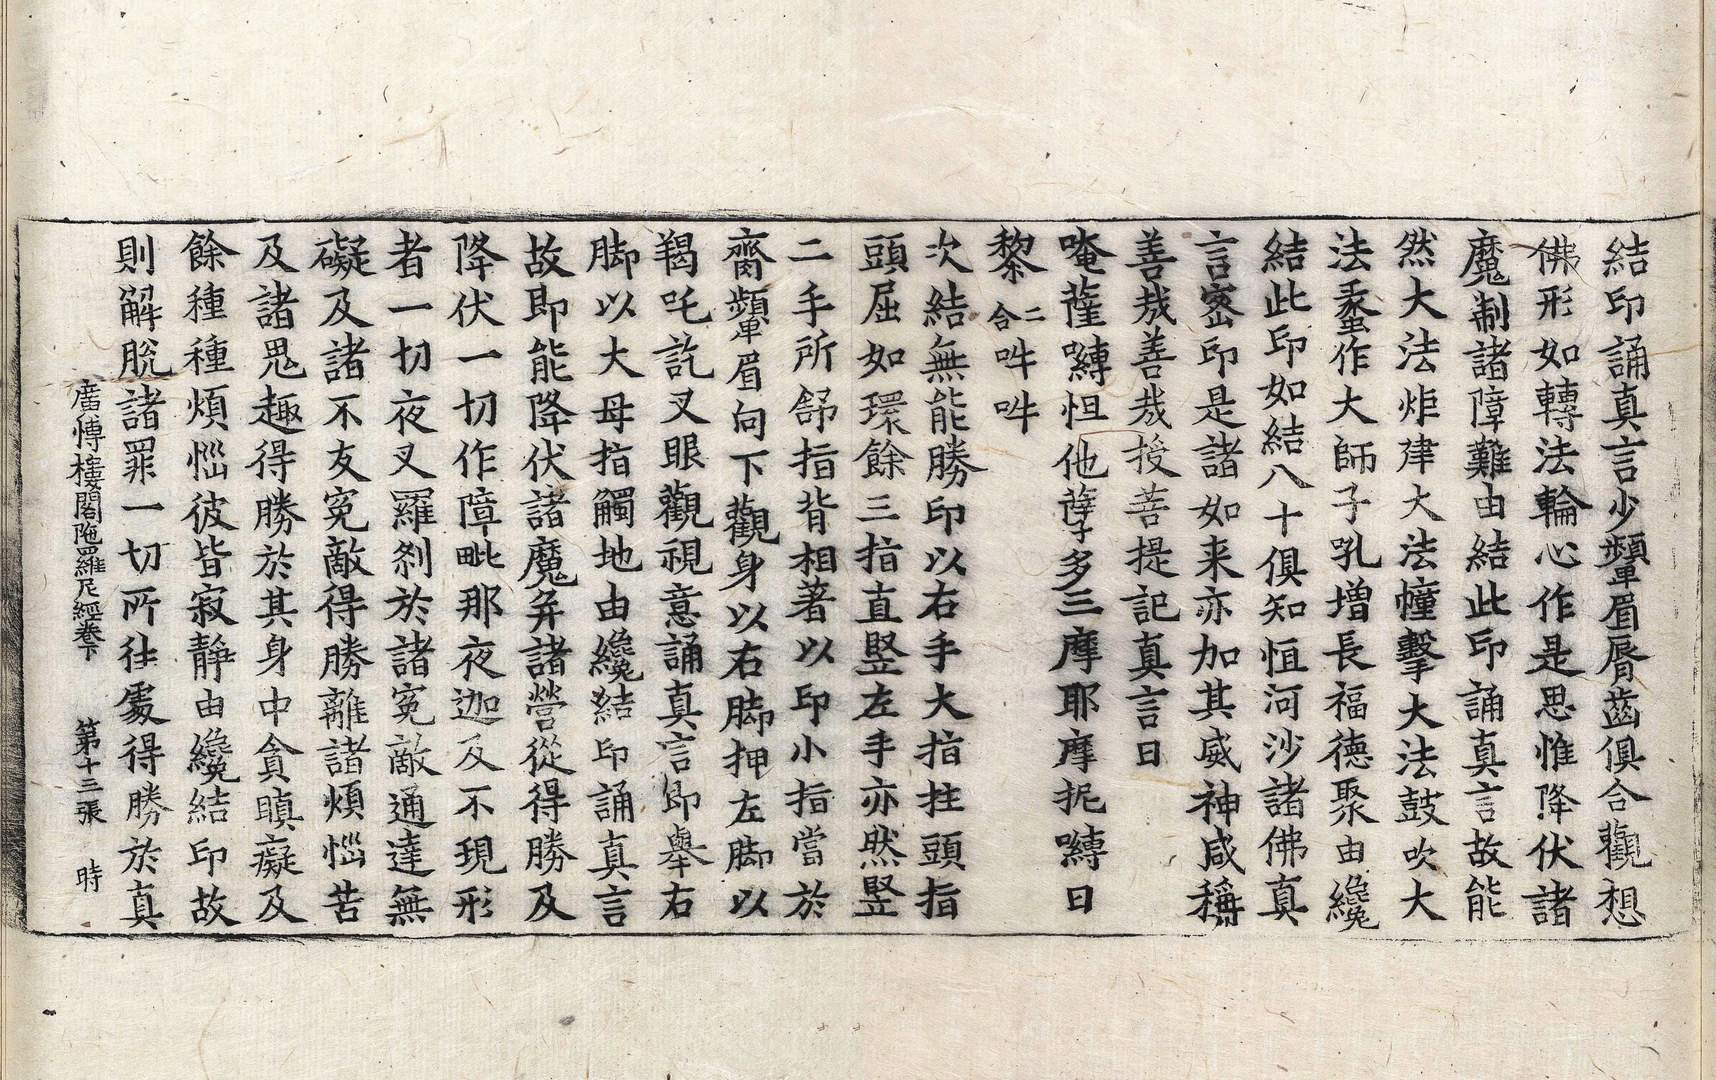 結印誦真言少顰眉脣齒俱合觀想
佛形如轉法輪心作是思惟降伏諸
魔制諸障難由結此印誦真言故能
然大法炬建大法幢擊大法鼓吹大
法螺作大師子吼增長福德聚由纔
結此印如結八十俱知恒河沙諸佛真
言密印是諸如来亦加其威神咸稱
善哉善哉授菩提記真言曰
唵薩嚩怛他孽多三摩耶摩抳嚩日
黎二合吽吽
次結無能勝印以右手大指拄頭指
頭屈如環餘三指直竪左手亦然竪
二手所舒指背相著以印小指當於
齎顰眉向下觀身以右脚押左脚以
羯吒訖叉眼觀視意誦真言即舉右
脚以大母指觸地由纔結印誦真言
故即能降伏諸魔并諸營從得勝及
降伏一切作障毗那夜迦及不現形
者一切夜叉羅刹於諸寃敵通達無
礙及諸不友寃敵得勝離諸煩惱苦
及諸惡趣得勝於其身中貪瞋癡及
餘種種煩惱彼皆寂靜由纔結印故
則解脫諸罪一切所往處得勝於真
廣愽樓閣陁羅尼經卷下 第十三張 時